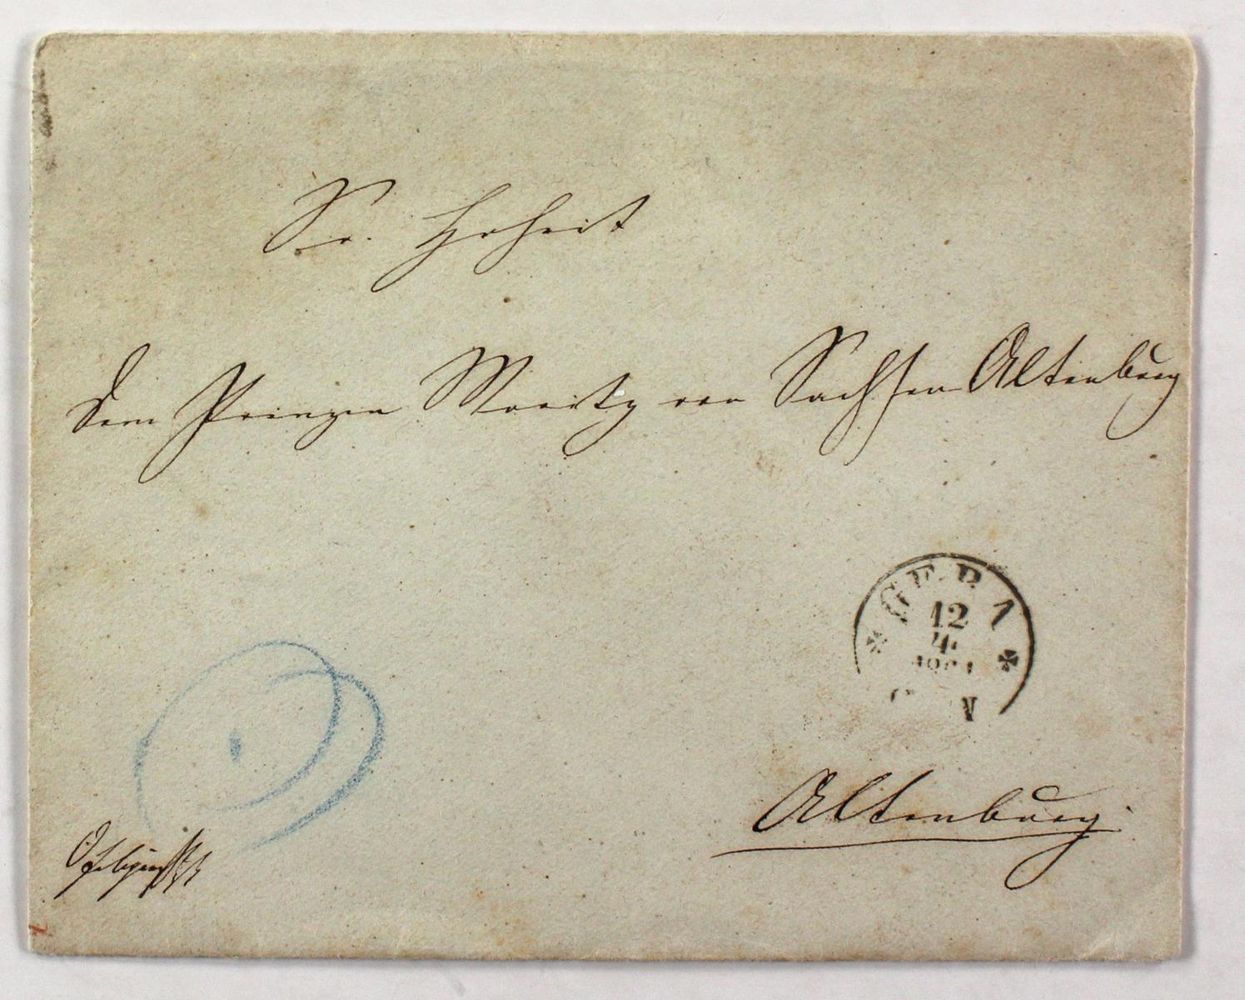 Sr. Hoheit
dem Prinzen Moritz von Sachsen Altenburg
GERA
12
4
Altenburg.